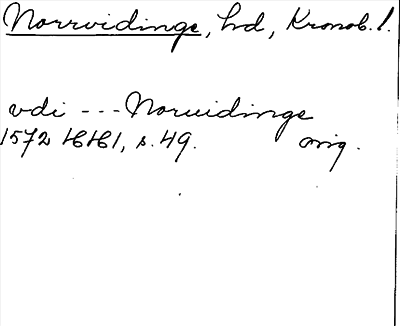 Norrvidinge, hd, Kronob. l.
vdi --- Noruidinge
1572 HHH1, s. 49. orig.